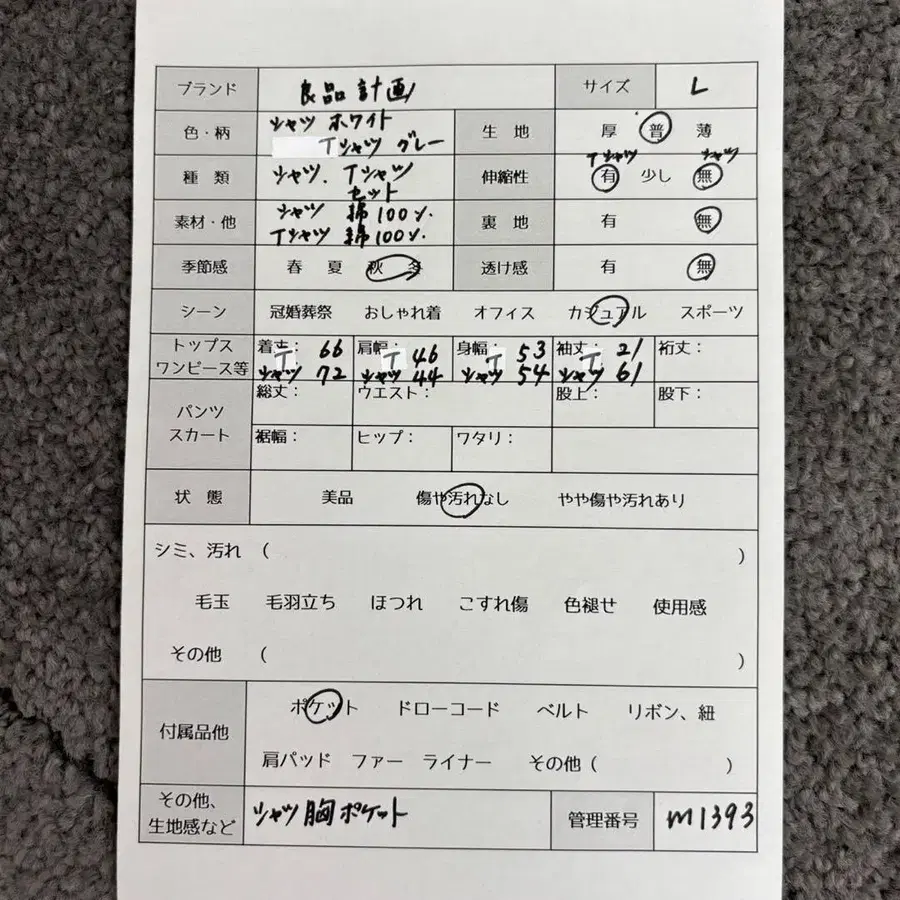 ブランド 良品計画 サイズ L
色・柄 シャツ ホワイト 生地 厚 普 薄
Tシャツ グレー
Tシャツ シャツ
種類 シャツ、Tシャツ 伸縮性 有 少し 無
セット
素材・他 シャツ 綿100% 裏地 有 無
Tシャツ 綿100%
季節感 春 夏 秋 冬 透け感 有 無
シーン 冠婚葬祭 おしゃれ着 オフィス カジュアル スポーツ
トップス 着丈: T 66 肩幅: T 46 身幅: T 53 袖丈: T 21 裄丈:
ワンピース等 シャツ 72 シャツ 44 シャツ 54 シャツ 61
パンツ 総丈: ウエスト: 股上: 股下:
スカート 裾幅: ヒップ: ワタリ:
状態 美品 傷や汚れなし やや傷や汚れあり
シミ、汚れ ( )
毛玉 毛羽立ち ほつれ こすれ傷 色褪せ 使用感
その他 ( )
付属品他 ポケット ドローコード ベルト リボン、紐
肩パッド ファー ライナー その他 ( )
その他、
生地感など シャツ胸ポケット 管理番号 m1393